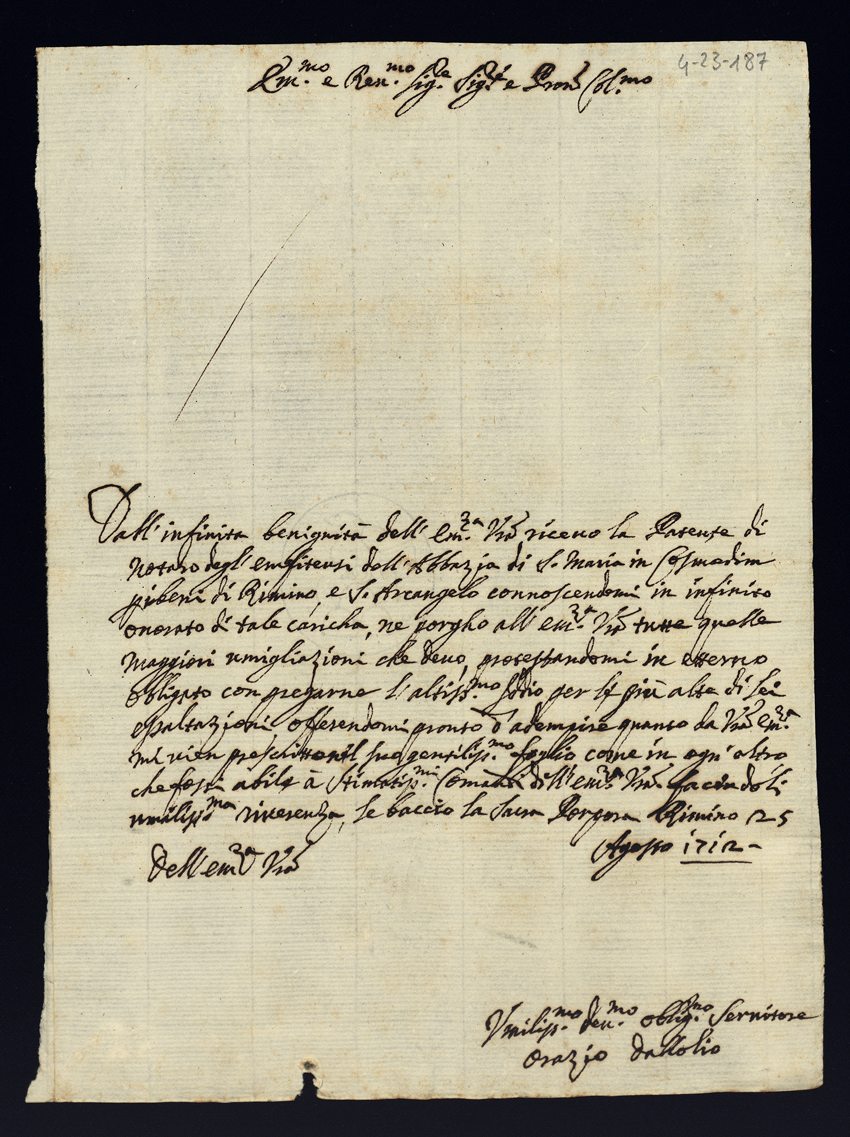 4-23-187
Em.mo e Reu.mo Sig.re Sig.re e Pron Col.mo
Dall' infinita benignità dell' Em.za Vra riceuo la Patente di
Notaro degl' emfiteusi dell' Abbazia di S. Maria in Cosmedim
pibeni di Rimino e S. Arcangelo connoscendomi in infinito
onorato di tale caricha, ne porgho all' em.za Vra tutte quelle
maggiori umigliazioni che deuo, protestandomi in etterno
obligato con pregarne l'altiss.mo Iddio per le più alte di lei
essaltazioni offerendomi pronto d'adempire quanto da Vra Em.za
mi vien preschitto nel suo gentiliss.mo foglio come in ogn' altro
che fossi abile à stimatiss.mi Comandi dell' em.za Vra facendoli
umiliss.ma riuerenza, le baccio la Sacra Porpora Rimino 25
Agosto 1712 -
Dell' em.za Vra
Vmiliss.mo deu.mo oblig.mo Seruitore
Orazio Dallolio